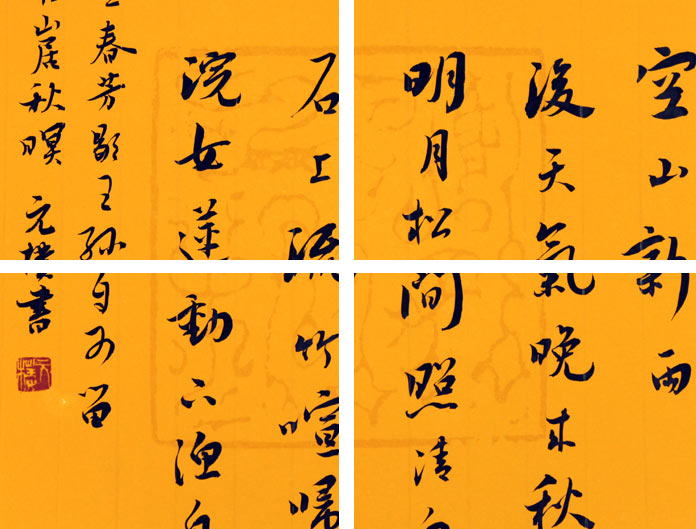 空山新雨
後天氣晚來秋
明月松間照清
石上流竹喧歸
浣女蓮動下漁
春芳歇王孫自可留
山居秋暝 元書